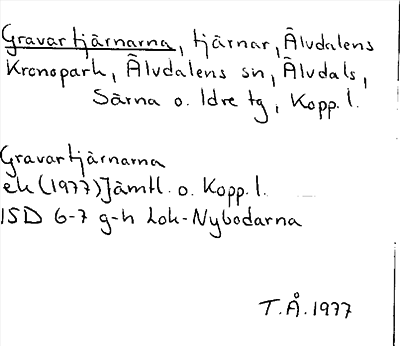 Gravartjärnarna, tjärnar, Älvdalens
Kronopark, Älvdalens sn, Älvdals,
Särna o. Idre tg, Kopp. l.
Gravartjärnarna
ek (1977) Jämtl. o. Kopp. l.
15D 6-7 g-h Lok-Nybodarna
T.Å. 1977